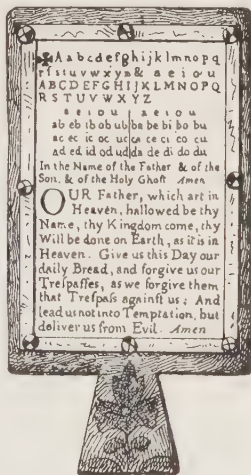 ✠Aabcdefghijklmnopq
rſstuvwxyz& aeiou
ABCDEFGHIJKLMNOPQ
RSTUVWXYZ
aeiou aeiou
ab eb ib ob ub ba be bi bo bu
ac ec ic oc uc ca ce ci co cu
ad ed id od ud da de di do du
In the Name of the Father & of the
Son, & of the Holy Ghoſt Amen
OUR Father, which art in
Heaven, hallowed be thy
Name, thy Kingdom come, thy
Will be done on Earth, as it is in
Heaven. Give us this Day our
daily Bread, and forgive us our
Treſpaſſes, as we forgive them
that Treſpaſs againſt us; And
lead us not into Temptation, but
deliver us from Evil. Amen